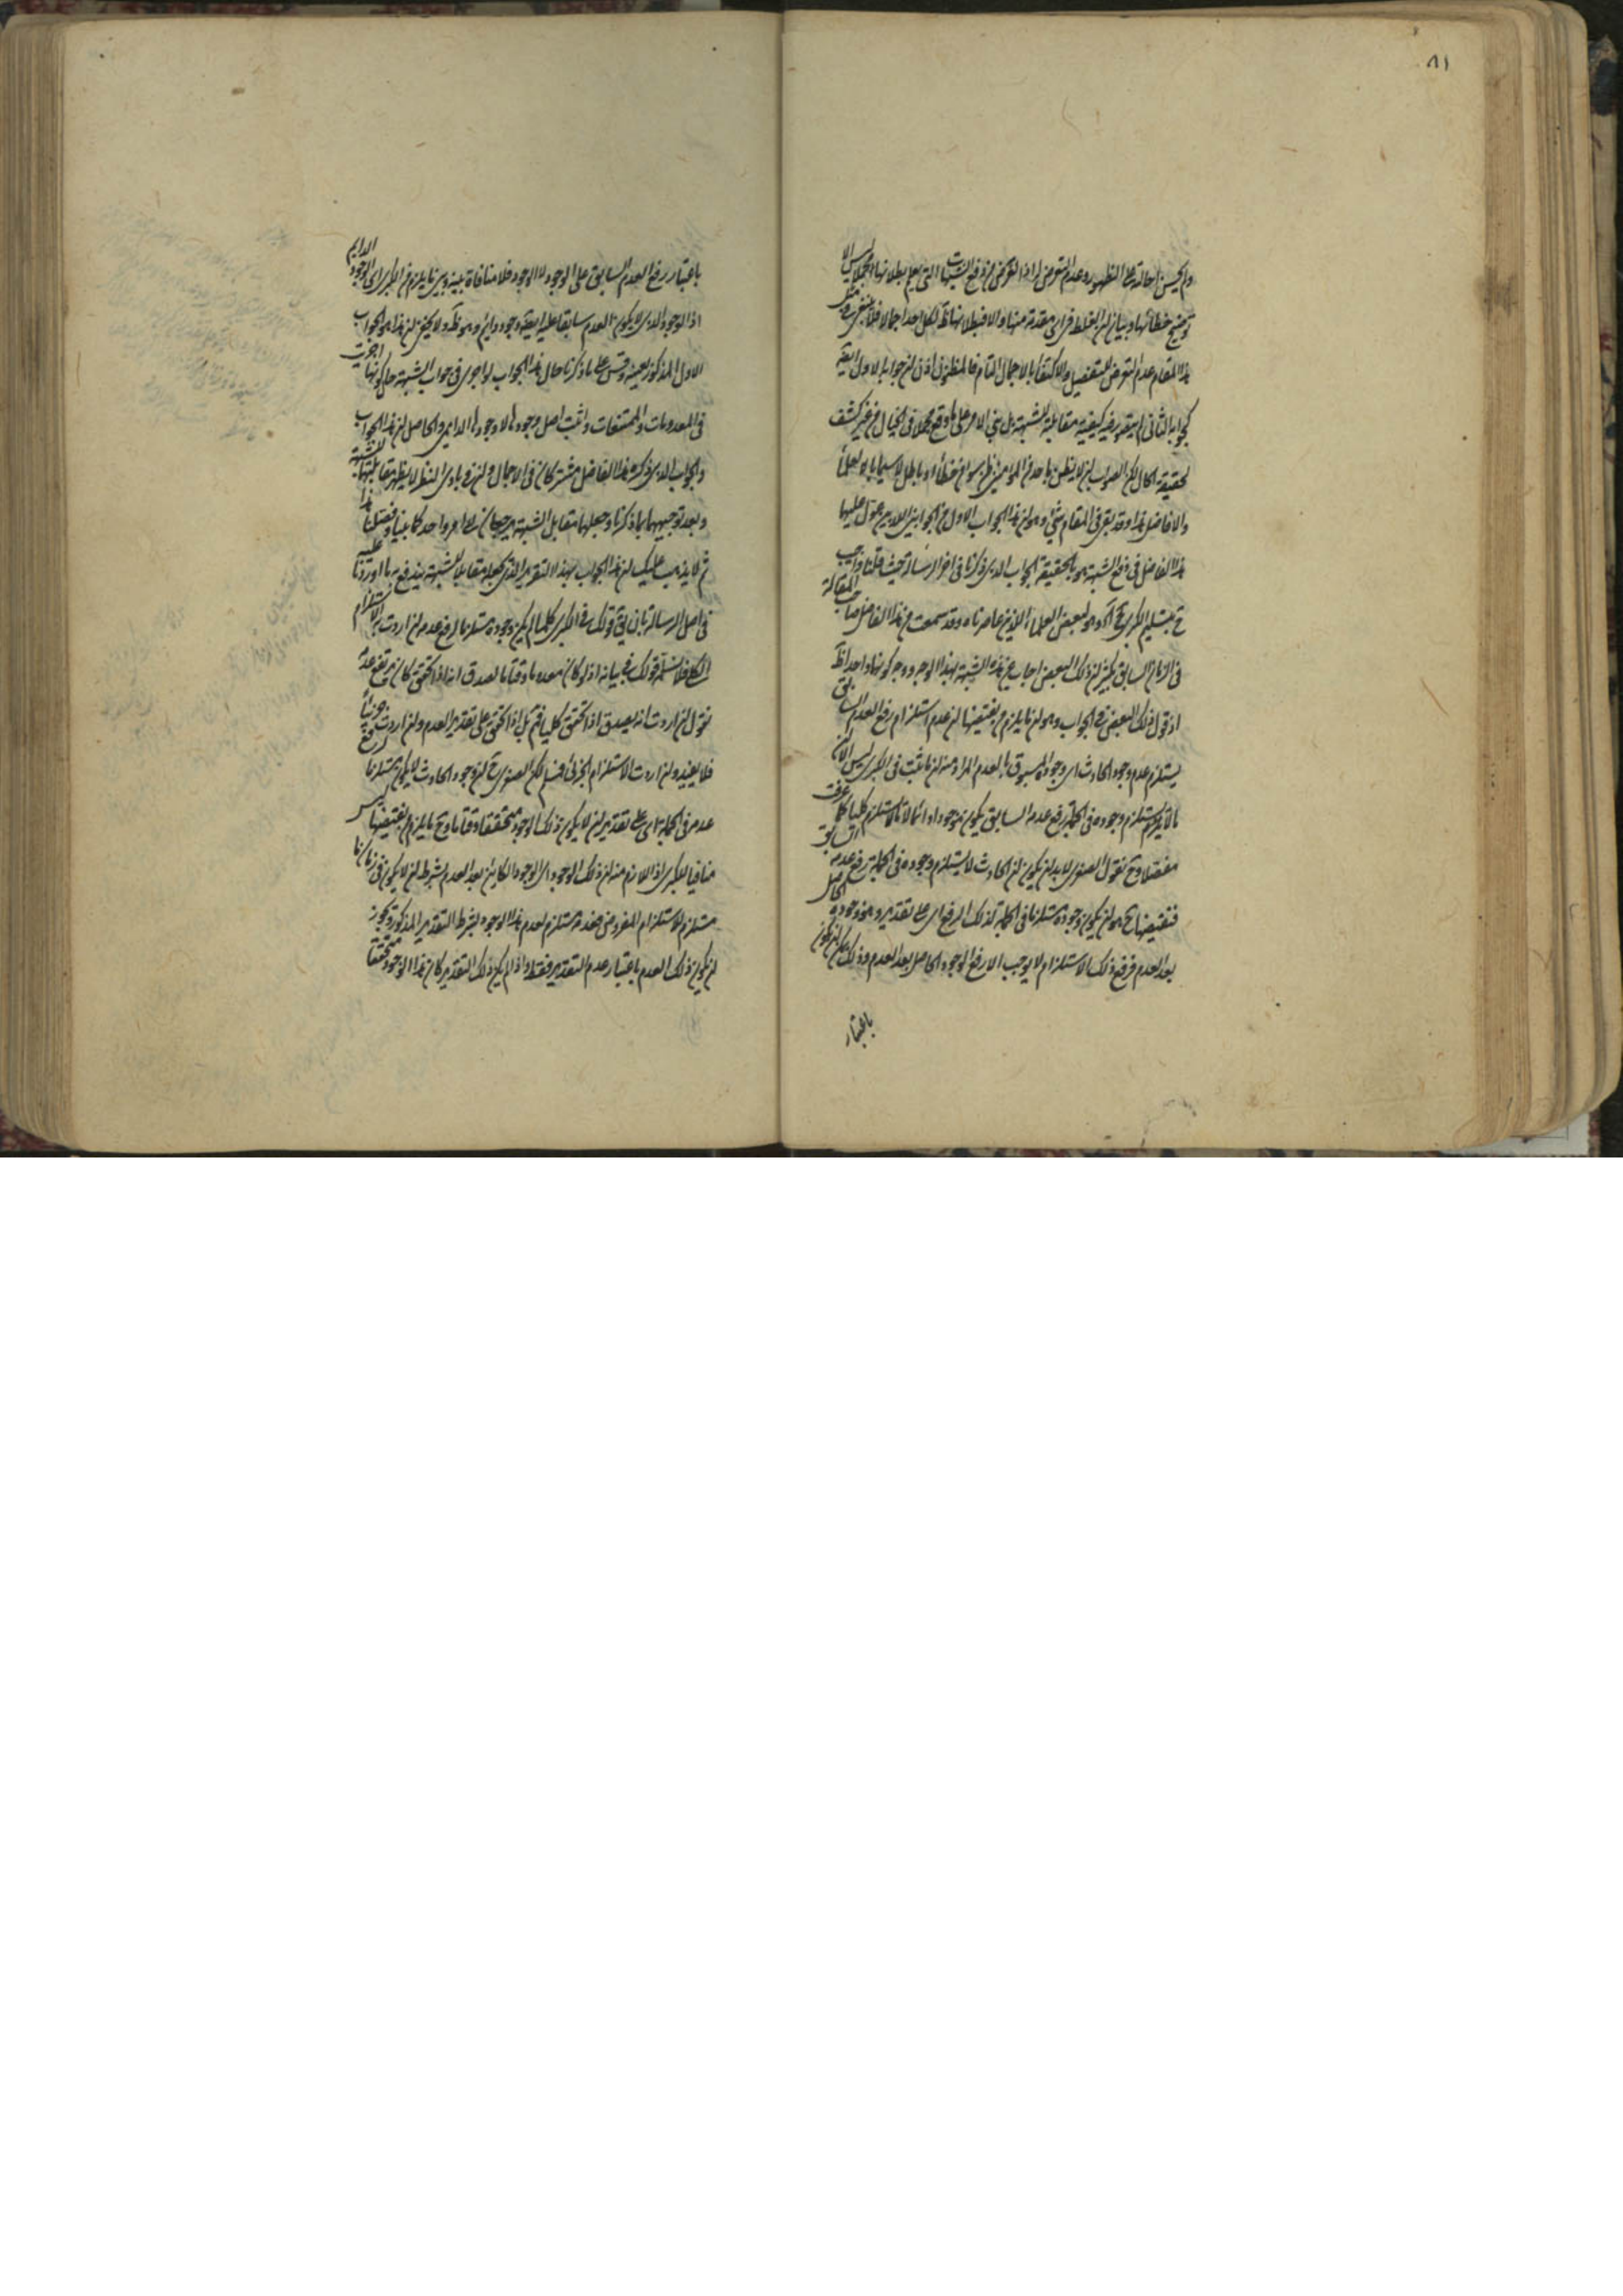 ٨١
ولم يحسن احالته على الظهور وعدم التعرض له اذ الغرض من دفع الشبهات التى يعلم بطلانها اجمالا ليس الا
توضيح خطائها وبيان ان الغلط فى اى مقدمة منها والا فبطلانها ظ لكل احد اجمالا فلا ينبغى فى مثل
هذا المقام عدم التعرض للتفصيل والاكتفاء بالاجمال التام فالمظنون اذن ان جوابه الاول ايضا
كجوابه الثانى لم يتصور فيه كيفية مقابلة الشبهة بل بنى الامر على ما وقع مجملا فى الخيال من غير كشف
لحقيقة الحال لكن الصواب ان لا يظن باحد من المؤمنين ظن سوء من خطأ او باطل لا سيما بالعلماء
والافاضل هذا وقد بقى فى المقام شئ وهو ان هذا الجواب الاول من الجوابين اللذين عول عليهما
هذا الفاضل فى دفع الشبهة هو بالحقيقة الجواب الذى ذكرنا فى اخر الرسالة حيث قلنا واجيب
ح بتسليم الكبرى آه وهو لبعض العلماء الذين عاصرناه وقد سمعت من هذا الفاضل صاحب المقالة
فى الزمان السابق بكثير ان ذلك البعض اجاب عن هذه الشبهة بهذا الوجه ووجه كونهما واحدا ظ
اذ قول ذلك البعض فى الجواب وهو ان ما يلزم من نقيضها ان عدم استلزام رفع العدم السابق
يستلزم عدم وجود الحادث اى وجوده المسبوق بالعدم المراد منه ان ما ثبت فى الكبرى ليس الا ان
ما لا يكون يستلزم وجوده فى الجملة رفع عدمه السابق يكون موجودا دائما لا ما لا يستلزم كليا كما عرفت
مفصلا وح نقول الصغرى لا بد ان يكون ان الحادث لا يستلزم وجوده فى الجملة رفع عدمه السابق
فنقيضها ح هو ان يكون وجوده مستلزما فى الجملة لذلك الرفع اى على تقدير وهو وجوده الحاصل
بعد العدم فرفع ذلك الاستلزام لا يوجب الا رفع الوجود الحاصل بعد العدم وذلك يمكن ان يكون
باعتبار
باعتبار رفع العدم السابق على الوجود لا الوجود فلا منافاة بينه وبين ما يلزم من الكبرى اى الوجود الدايم
اذ الوجود الذى لا يكون العدم سابقا عليه ايضا وجود دايم وهو ظ ولا يخفى ان هذا هو الجواب
الاول المذكور بعينه وقس على ما ذكرنا حال هذا الجواب لو اجرى فى جواب الشبهة حال كونها اجريت
فى المعدومات والممتنعات واثبت اصل وجودها لا وجودها الدايمى والحاصل ان هذا الجواب
والجواب الذى ذكره هذا الفاضل مشتركان فى الاجمال وان فى بادى النظر لا يظهر مقابلتهما للشبهة
وبعد توجيههما بما ذكرنا وجعلهما مقابل الشبهة يرجعان الى امر واحد كما بينا وفصلنا هذا
ثم لا يذهب عليك ان هذا الجواب بهذا التقرير الذى يجعله مقابلا للشبهة يندفع بما اوردنا عليه
فى اصل الرسالة بان يق قولك فى الكبرى كلما لم يكن وجوده مستلزما لرفع عدمه ان اردت به الاستلزام
الكلى فلا نسلم قولك فى بيانه اذ لو كان معدوما وقتا ما لصدق انه اذا تحقق كان يرتفع عدمه
نقول ان اردت انه يصدق اذا تحقق كليا فمم بل اذا تحقق على تقدير العدم وان اردت جزئيا
فلا يفيد وان اردت الاستلزام الجزئى فنسلم لكن الصغرى ح ان وجود الحادث لا يكون مستلزما لرفع
عدمه فى الجملة اى على تقدير ان لا يكون ذلك الوجود متحققا وقتا ما وح ما يلزم من نقيضها ليس
منافيا للكبرى اذ اللازم منه ان ذلك الوجود اى الوجود الكاين بعد العدم بشرط ان لا يكون فى زمان ما
مستلزم للاستلزام المفروض فعدمه مستلزم لعدم هذا الوجود بشرط التقدير المذكور ويجوز
ان يكون ذلك العدم باعتبار عدم التقدير فقط واذا لم يكن ذلك التقدير كان هذا الوجود متحققا